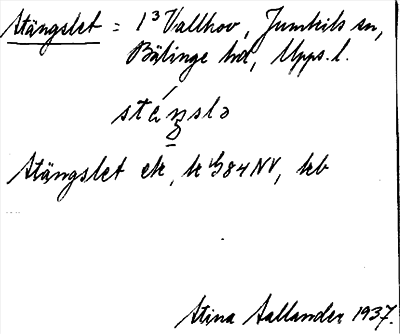 Stängslet = 1³ Vallhov, Jumkils sn,
Bälinge hd, Upps. l.
stáŋslə
Stängslet ek, k 4/384 NV, hb
Stina Sallander 1937.